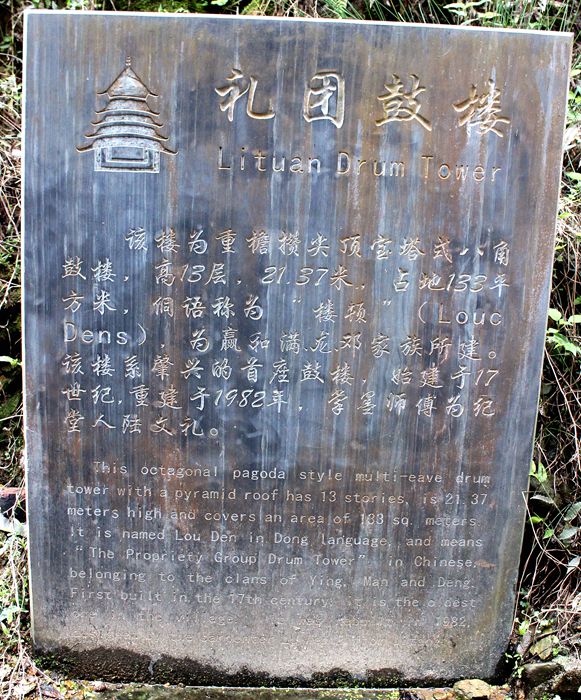 礼团鼓楼
Lituan Drum Tower
该楼为重檐攒尖顶宝塔式八角
鼓楼，高13层，21.37米，占地133平
方米，侗语称为“楼顿”（Louc
Dens），为赢和满龙邓家族所建。
该楼系肇兴的首座鼓楼，始建于17
世纪，重建于1982年，掌墨师傅为纪
堂人陆文礼。
This octagonal pagoda style multi-eave drum
tower with a pyramid roof has 13 stories, is 21.37
meters high and covers an area of 133 sq. meters.
It is named Lou Den in Dong language, and means
“The Propriety Group Drum Tower” in Chinese,
belonging to the clans of Ying, Man and Deng.
First built in the 17th century, it is the oldest
one in the village. 1982.